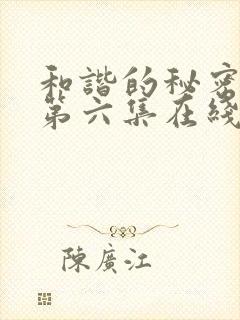 和諧的秘密
第六集在綫
陳廣江